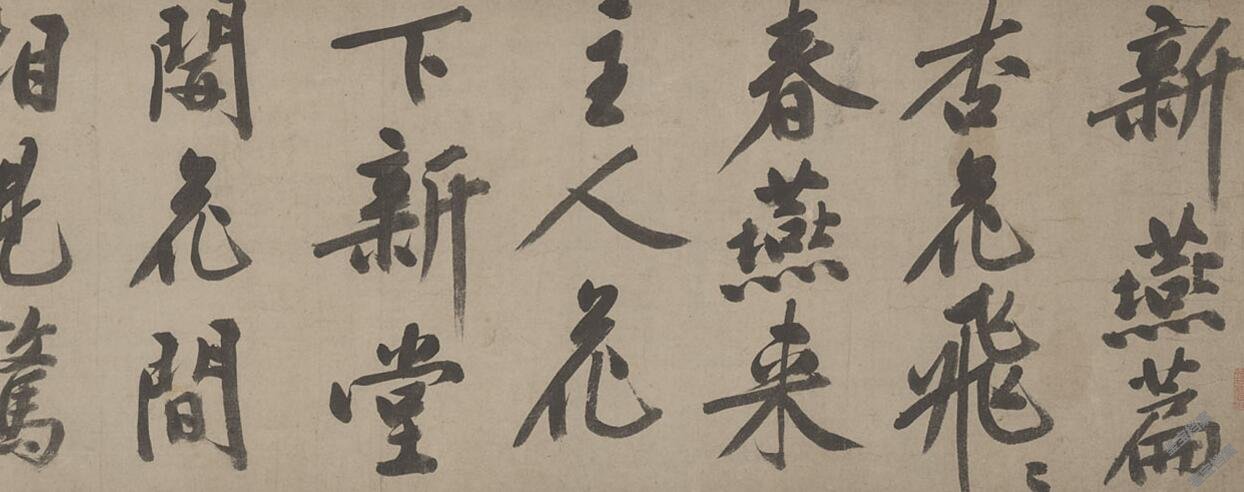 新燕篇
杏花飛〻
春燕来
主人花
下新堂
開花間
相見驚